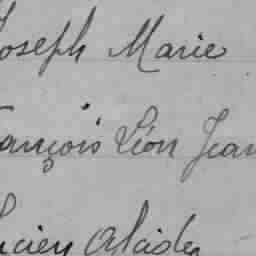 Joseph Marie
François Léon Jean
Lucien Alcide